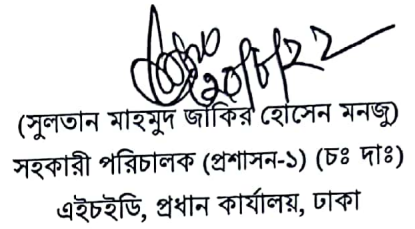 ২০/৮/২২
(সুলতান মাহমুদ জাকির হোসেন মনজু)
সহকারী পরিচালক (প্রশাসন-১) (চঃ দাঃ)
এইচইডি, প্রধান কার্যালয়, ঢাকা